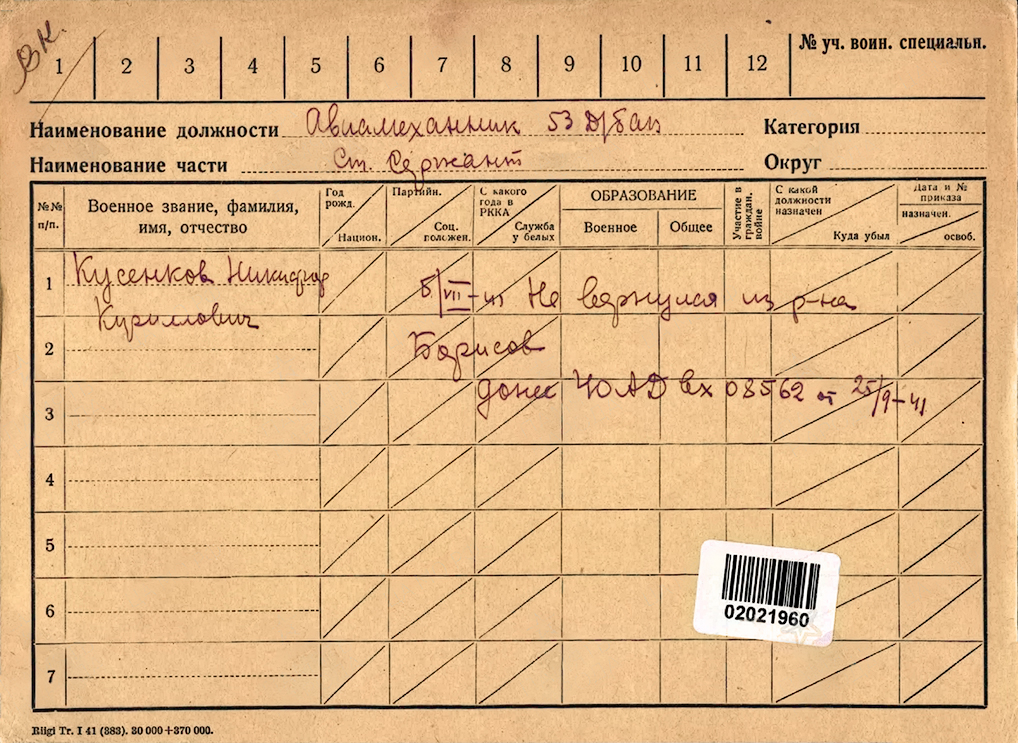 ВК.
1 2 3 4 5 6 7 8 9 10 11 12
№ уч. воин. специальн.
Наименование должности Авиамеханник 53 Д/бап Категория
Наименование части Ст. Сержант Округ
№№ п/п.
Военное звание, фамилия, имя, отчество
Год рожд.
Национ.
Партийн.
Соц. положен.
С какого года в РККА
Служба у белых
ОБРАЗОВАНИЕ
Военное
Общее
Участие в граждан. войне
С какой должности назначен
Куда убыл
Дата и № приказа
назначен.
освоб.
1 Кусенков Никифор
Кириллович
6/VII-41 Не вернулся из р-на
2 Борисов
3 донес ЮАД вх 08562 от 25/9-41
4
5
6
7
02021960
Riigi Tr. I 41 (383). 30 000+370 000.